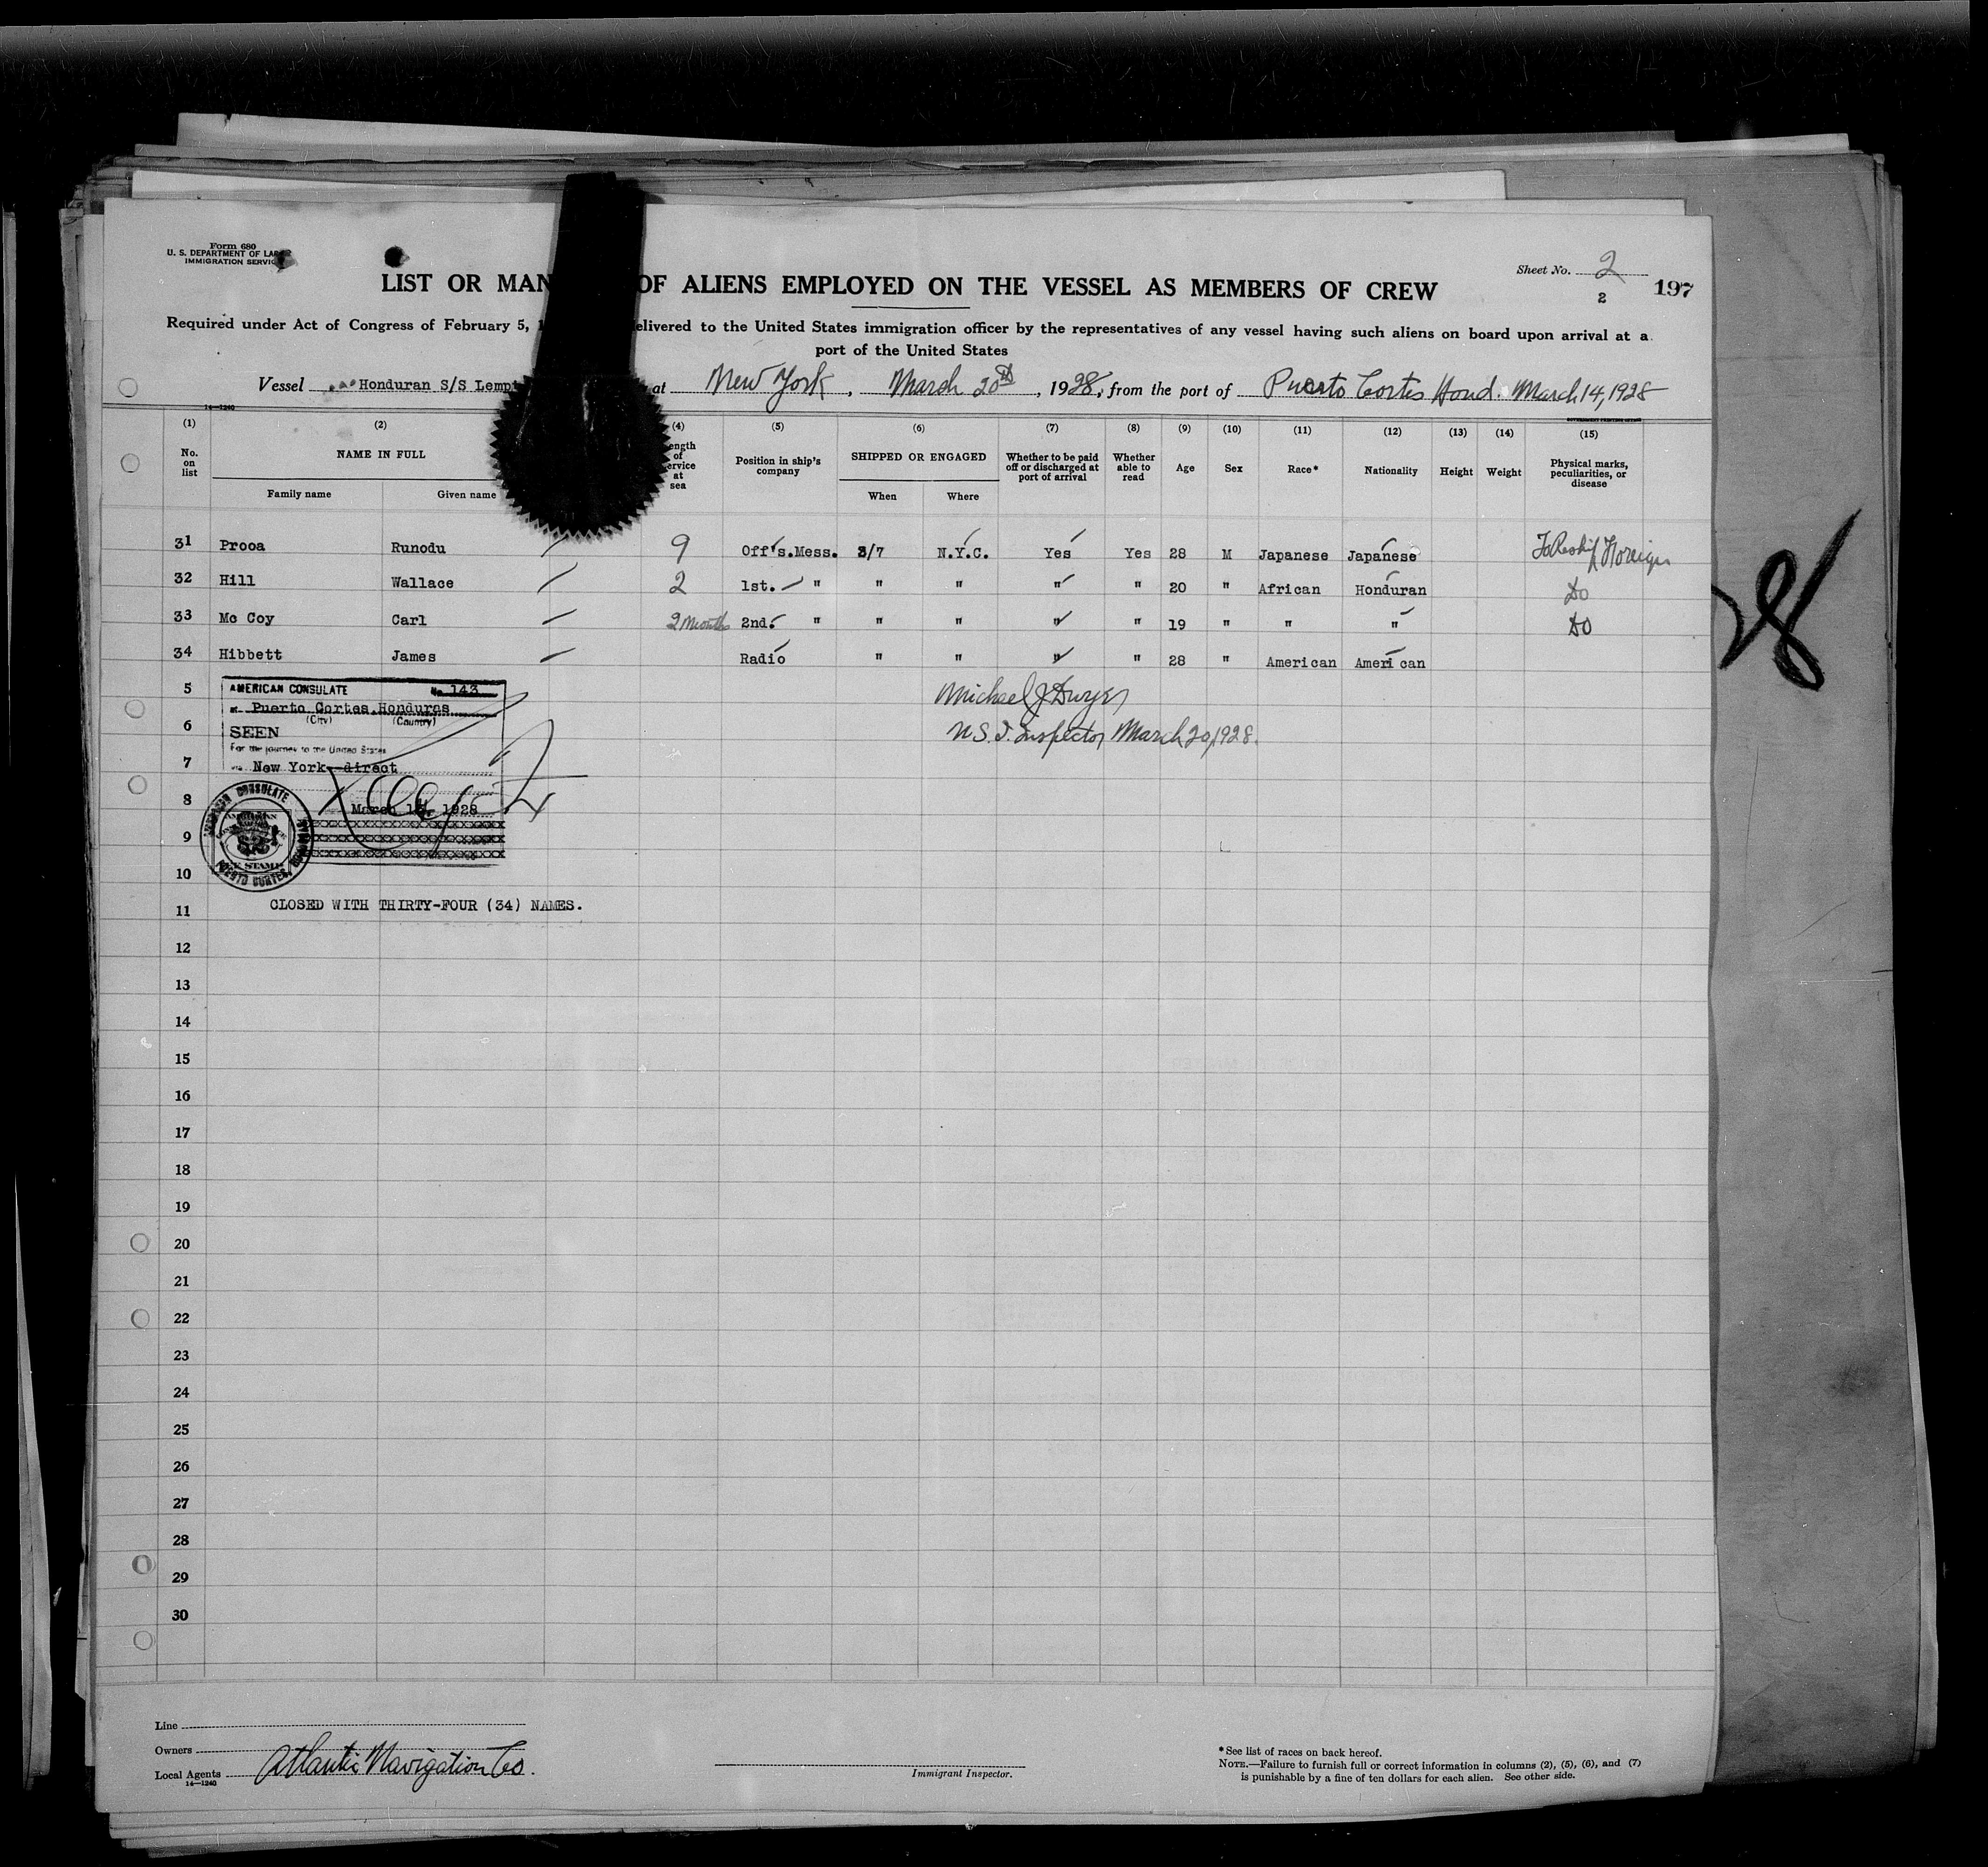 Form 680
U. S. DEPARTMENT OF LABOR
IMMIGRATION SERVICE
Sheet No. 2
2
197
LIST OR MAN OF ALIENS EMPLOYED ON THE VESSEL AS MEMBERS OF CREW
Required under Act of Congress of February 5, 1 elivered to the United States immigration officer by the representatives of any vessel having such aliens on board upon arrival at a
port of the United States
Vessel Honduran S/S Lemp at New York, March 20th, 1928, from the port of Puerto Cortes Hond. March 14, 1928
14—1240
(1) (2) (4) (5) (6) (7) (8) (9) (10) (11) (12) (13) (14) (15)
No. on list NAME IN FULL ength of ervice at sea Position in ship's company SHIPPED OR ENGAGED Whether to be paid off or discharged at port of arrival Whether able to read Age Sex Race* Nationality Height Weight Physical marks, peculiarities, or disease
Family name Given name When Where
31 Prooa Runodu 9 Off's.Mess. 3/7 N.Y.C. Yes Yes 28 M Japanese Japanese To Reship Foreign
32 Hill Wallace 2 1st. " " " " " 20 " African Honduran Do
33 Mc Coy Carl 2 Months 2nd. " " " " " 19 " " " Do
34 Hibbett James Radio " " " " 28 " American American
5 AMERICAN CONSULATE No. 143
at Puerto Cortes, Honduras
(City) (Country)
6 SEEN
For the journey to the United States
7 via New York direct
Michael J Dwyer
U.S. I. Inspector March 20, 1928.
8 March 14, 1928
AMERICAN CONSULATE
FEE STAMP
PUERTO CORTES, HONDURAS
9
10
CLOSED WITH THIRTY-FOUR (34) NAMES.
11
12
13
14
15
16
17
18
19
20
21
22
23
24
25
26
27
28
29
30
28
Line
Owners
Local Agents Atlantic Navigation Co.
14—1240
Immigrant Inspector.
* See list of races on back hereof.
NOTE.—Failure to furnish full or correct information in columns (2), (5), (6), and (7)
is punishable by a fine of ten dollars for each alien. See other side.